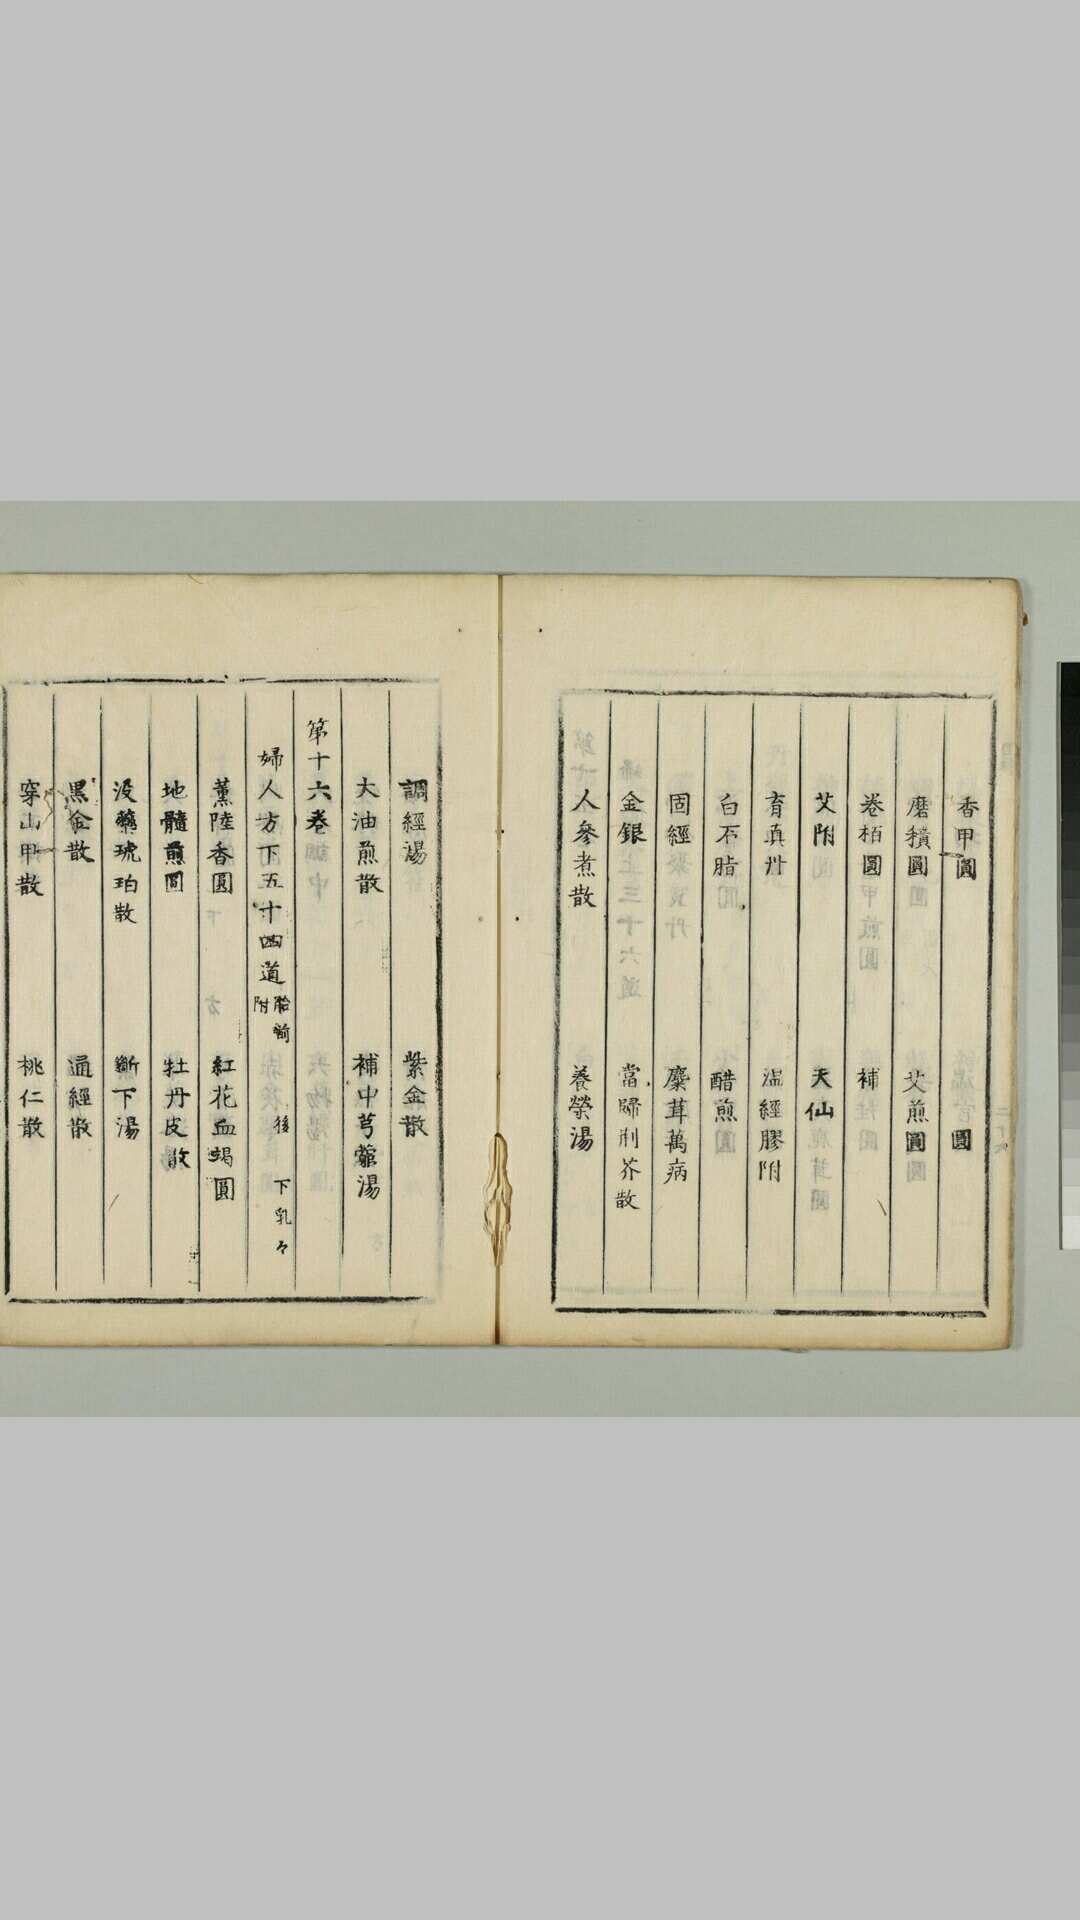 香甲圓　　圓
磨積圓　艾煎圓
卷栢圓　補
艾附　天仙
育真丹　温經膠附
白石脂　醋煎
固經　麋茸萬病
金銀　當歸荆芥散
人參煮散　養榮湯
調經湯　紫金散
大油煎散　補中芎藭湯
第十六卷
婦人方下五十四道 胎前 後 下乳々 附
薰陸香圓　紅花血竭圓
地髓煎圓　牡丹皮散
没藥琥珀散　斷下湯
黑金散　通經散
穿山甲散　桃仁散